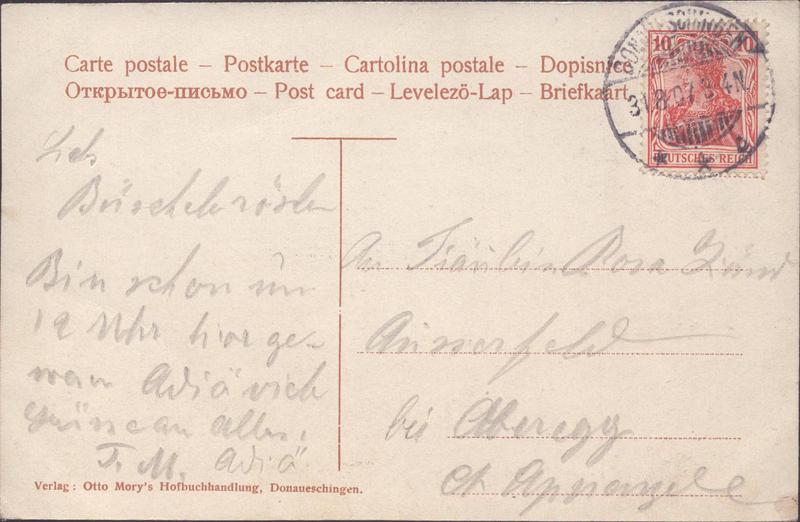 Carte postale – Postkarte – Cartolina postale – Dopisnice
Открытое-письмо – Post card – Levelezö-Lap – Briefkaart
10 10
31.8.07. 4N.
DEUTSCHES REICH
Büschelröslen
Bin schon um
12 Uhr hier ge-
Adiä
alles.
T. M. Adiä
An Fräulein Rosa Zünd
Ausserfeld
bei Oberegg
Ct Appenzell
Verlag: Otto Mory's Hofbuchhandlung, Donaueschingen.